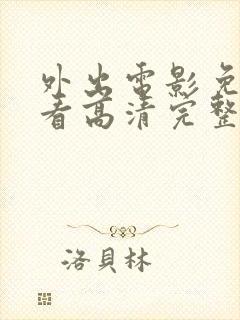 外出電影免
看高清完整
洛貝林